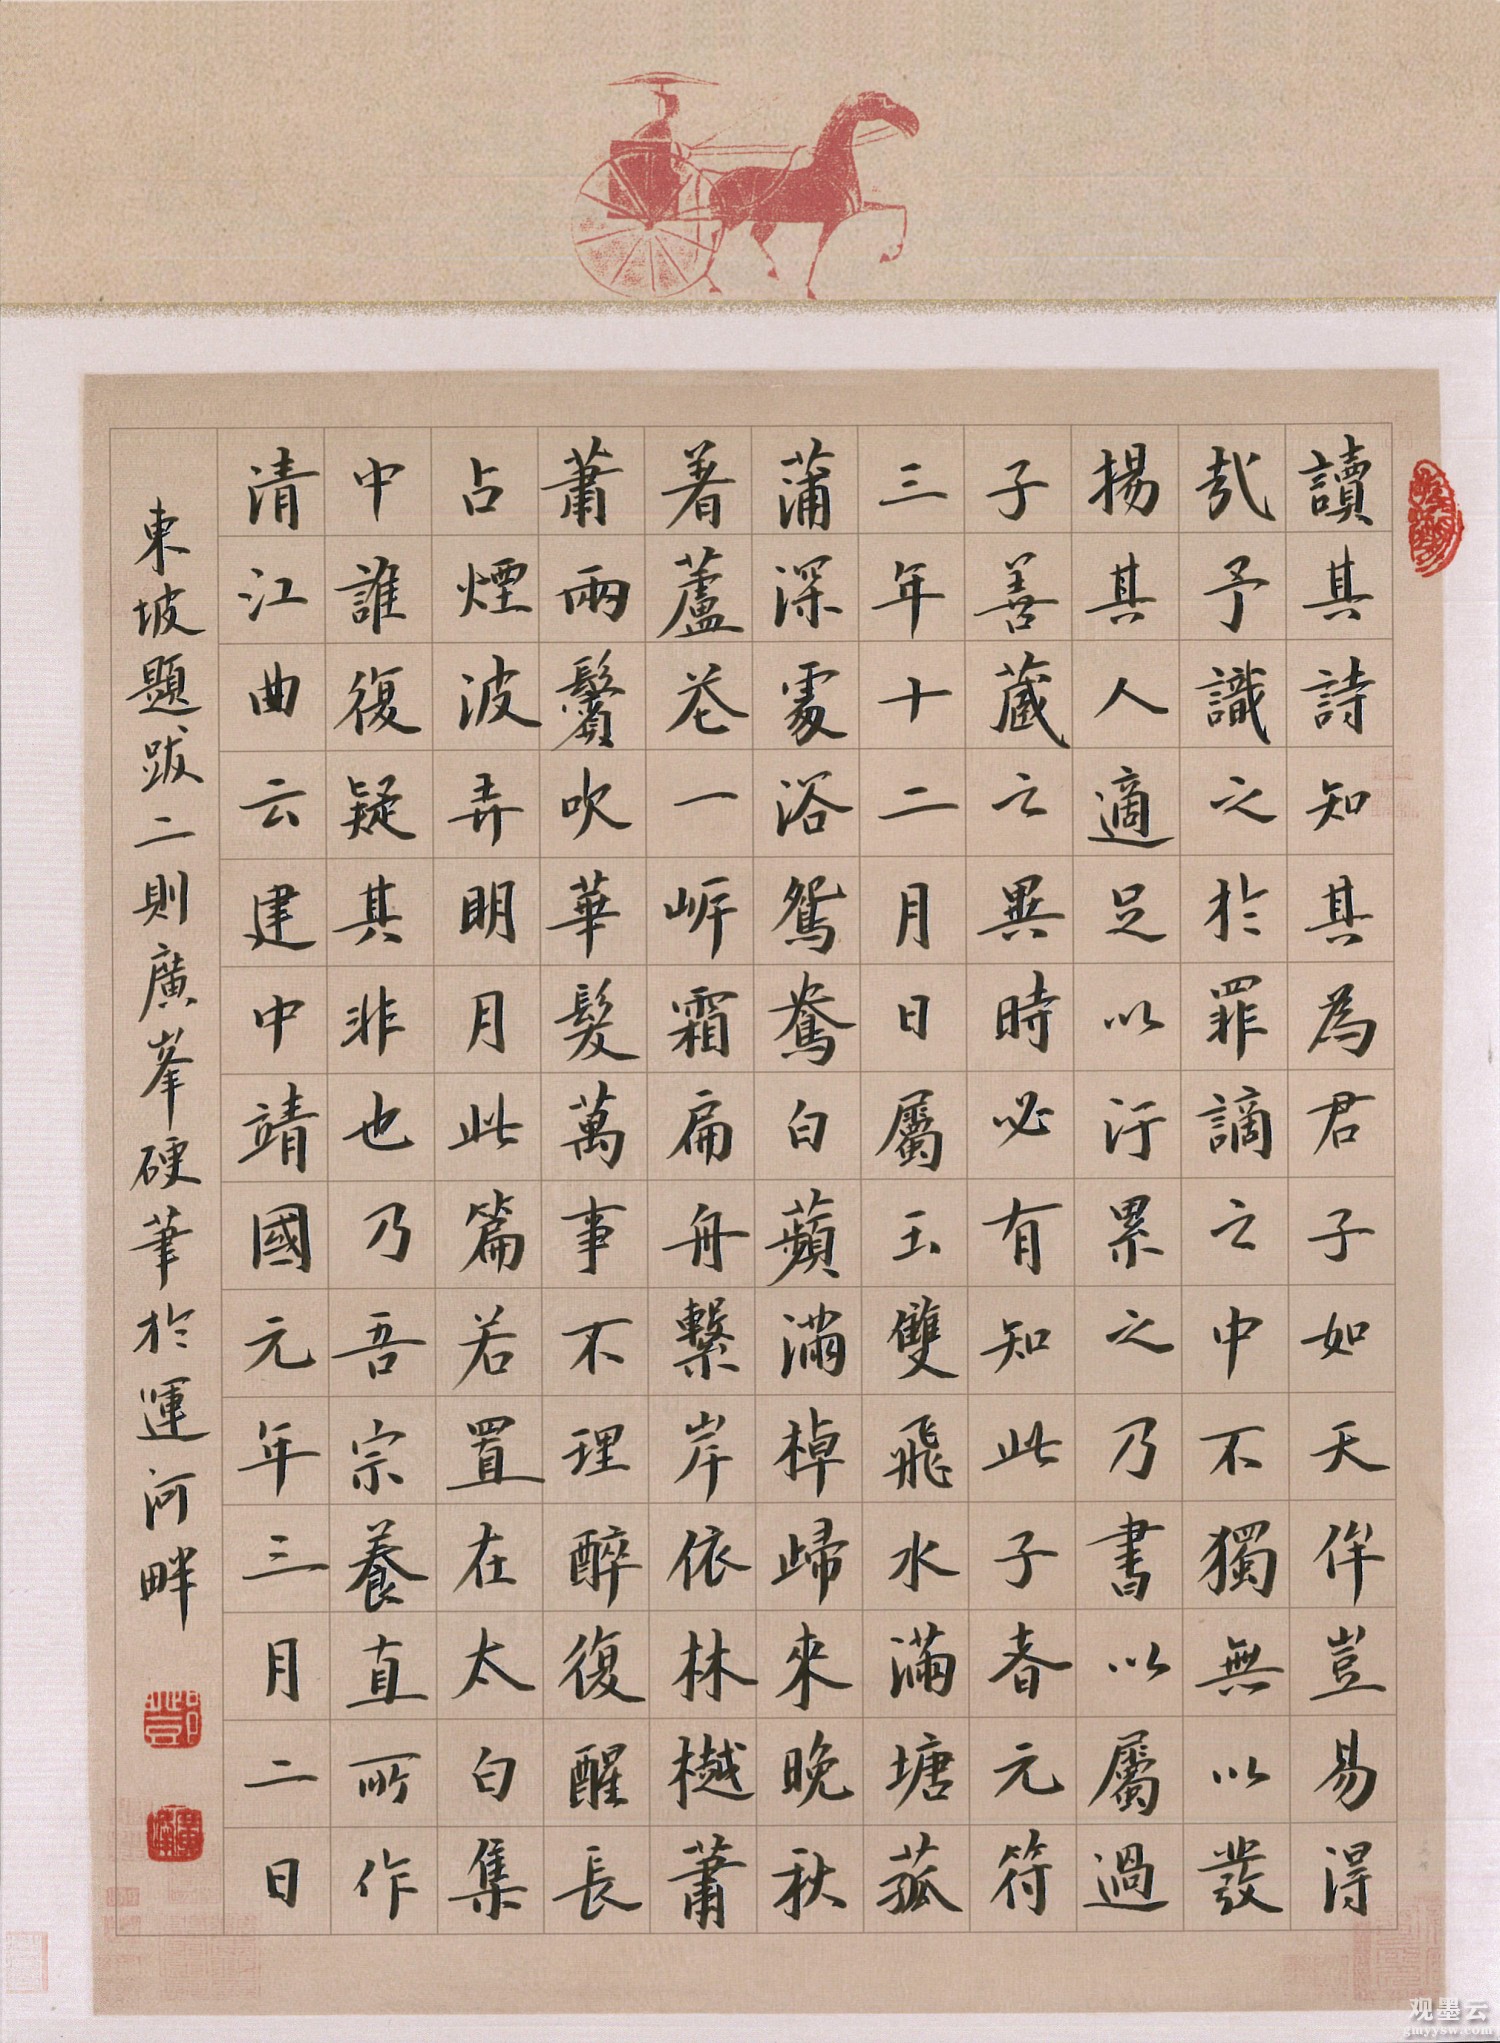 讀其詩知其為君子如天侔豈易得
哉予識之於罪謫之中不獨無以發
揚其人適足以汙累之乃書以屬過
子善藏之異時必有知此子者元符
三年十二月日屬玉雙飛水滿塘菰
蒲深處浴鴛鴦白蘋滿棹歸來晚秋
着蘆花一岸霜扁舟繫岸依林樾蕭
蕭兩鬢吹華髮萬事不理醉復醒長
占煙波弄明月此篇若置在太白集
中誰復疑其非也乃吾宗養直所作
清江曲云建中靖國元年三月二日
東坡題跋二則廣峯硬筆於運河畔
观墨云
gmyysw.com